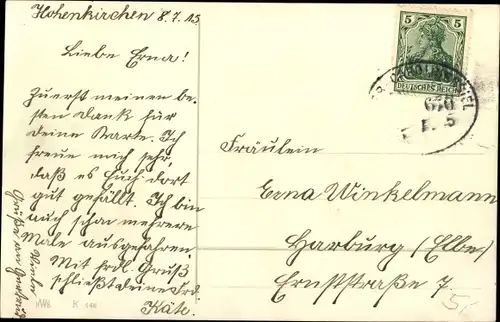 Hohenkirchen 8.7.15
Liebe Erna!
Zuerst meinen be-
sten Dank für
deine Karte. Ich
freue mich sehr,
daß es Euch dort
gut gefällt. Ich bin
auch schon mehrere
Male ausgefahren.
Mit frdl. Gruß
schließt deine Frd.
Käte.
Grüße an
5
5
DEUTSCHES REICH
Fräulein
Erna Winkelmann
Harburg (Elbe)
Ernststraße 7.
5,-
K 144